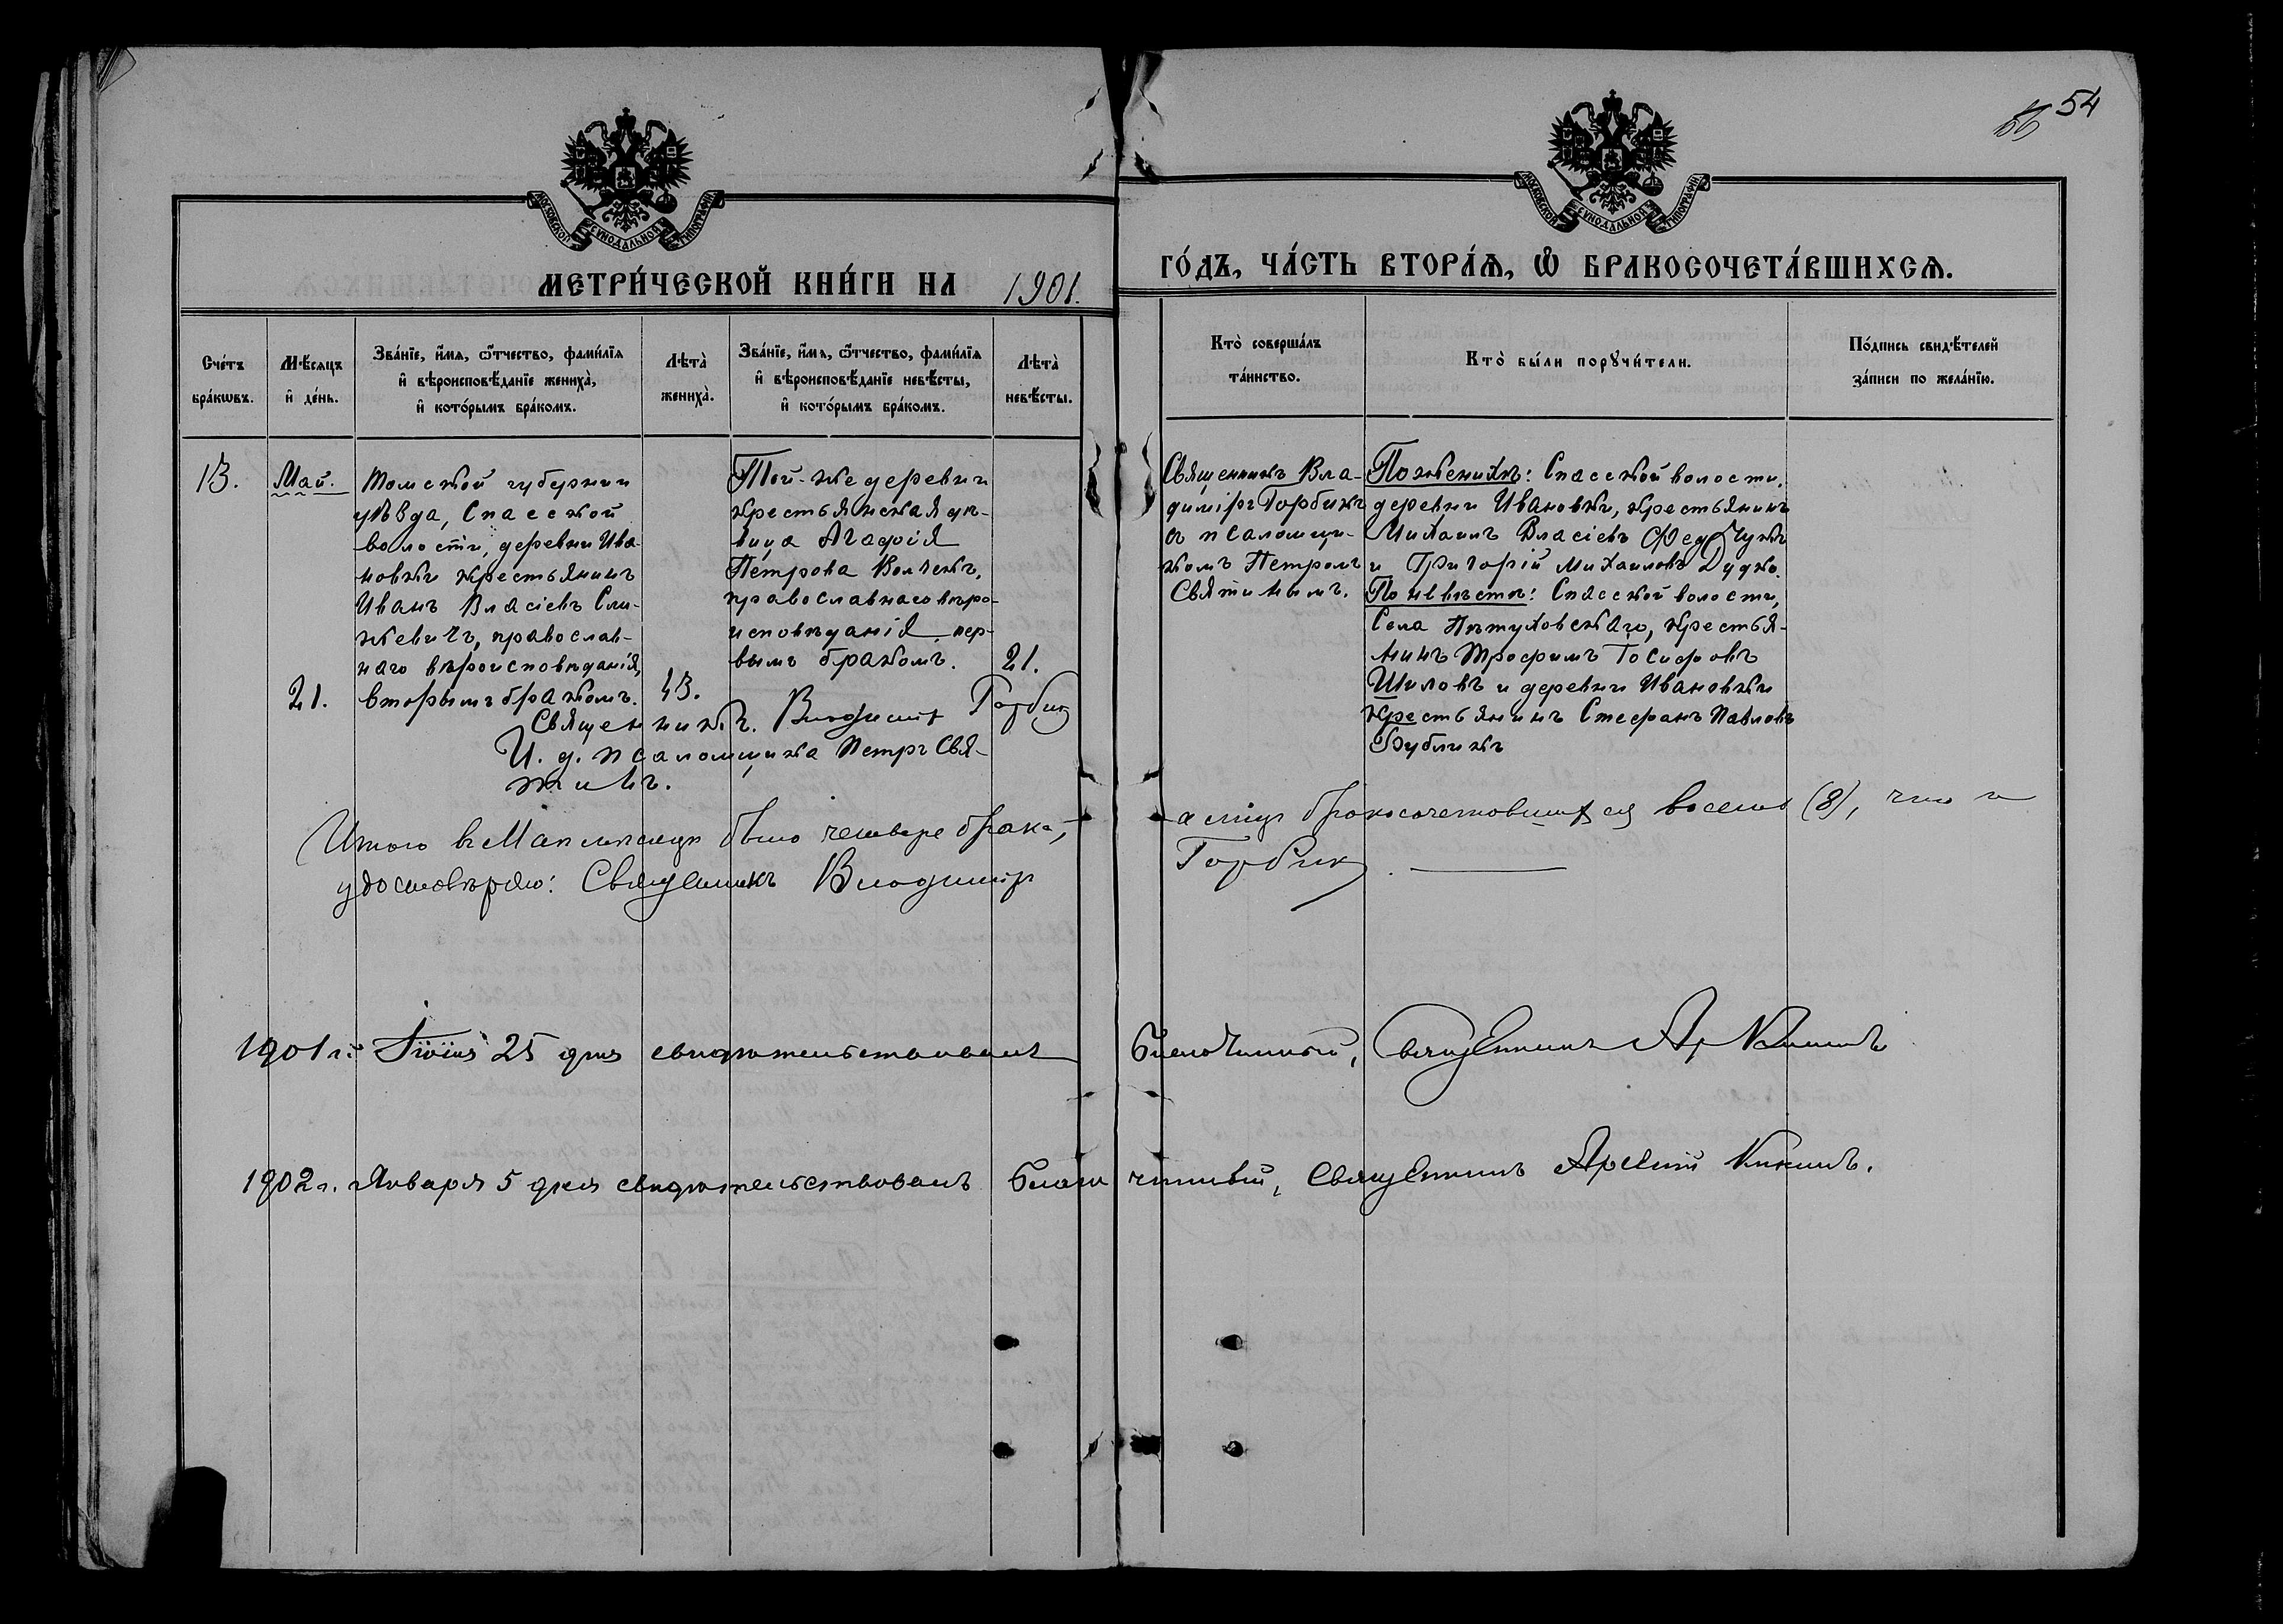 54
МОСКОВСКОЙ СУНОДАЛЬНОЙ ТИПОГРАФИИ
МОСКОВСКОЙ СУНОДАЛЬНОЙ ТИПОГРАФИИ
МЕТРИ́ЧЕСКОЙ КНИ́ГИ НА 1901.
ГО́ДЪ, ЧА́СТЬ ВТОРА́Я, Ѽ БРАКОСОЧЕТА́ВШИХСЯ.
Сче́тъ
бра́кѡвъ.
Мѣ́сяцъ
и҆ де́нь.
Зва́нїе, и҆́мя, ѻ҆́тчество, фами́лїя
и҆ вѣроисповѣ́данїе жениха̀,
и҆ кото́рымъ бра́комъ.
Лѣта̀
жениха̀.
Зва́нїе, и҆́мя, ѻ҆́тчество, фами́лїя
и҆ вѣроисповѣ́данїе невѣ́сты,
и҆ кото́рымъ бра́комъ.
Лѣта̀
невѣ́сты.
Кто̀ соверша́лъ
та́инство.
Кто̀ бы́ли порꙋчи́тели.
По́дпись свидѣ́телей
за́писи по жела́нїю.
13.
Май.
21.
Томской губернии
уѣзда, Спасской
волости, деревни Ива-
новки крестьянинъ
Иванъ Власіевъ Сми-
кевичъ, православ-
наго вѣроисповѣданія,
вторымъ бракомъ.
43.
Той-же деревни
крестьянская дѣ-
вица Агафія
Петрова Волчекъ,
православнаго вѣро-
исповѣданія, пер-
вымъ бракомъ.
21.
Священникъ Вла-
диміръ Горбикъ
съ псаломщи-
комъ Петромъ
Святинымъ.
По женихѣ: Спасской волости,
деревни Ивановки, крестьянинъ
Михаилъ Власіевъ Федчукъ
и Григорій Михаиловъ Дудко.
По невѣстѣ: Спасской волости,
Села Пѣтуховскаго, крестья-
нинъ Трофимъ Іосифовъ
Шиловъ и деревни Ивановки
крестьянинъ Стефанъ Павловъ
Бубликъ
Священникъ. Владиміръ Горбик
И. д. псаломщика Петръ Свя-
тинъ.
Итого въ Маѣ мѣсяцѣ было четыре брака,
бракосочетовшихся восемь (8), что и
удостовѣряю: Священникъ Владиміръ Горбик.
1901 г. Іюня 25 дня свидѣтельствовалъ Благочинный, Священникъ
1902 г. Января 5 дня свидѣтельствовалъ Благочинный, Священникъ Арсеній